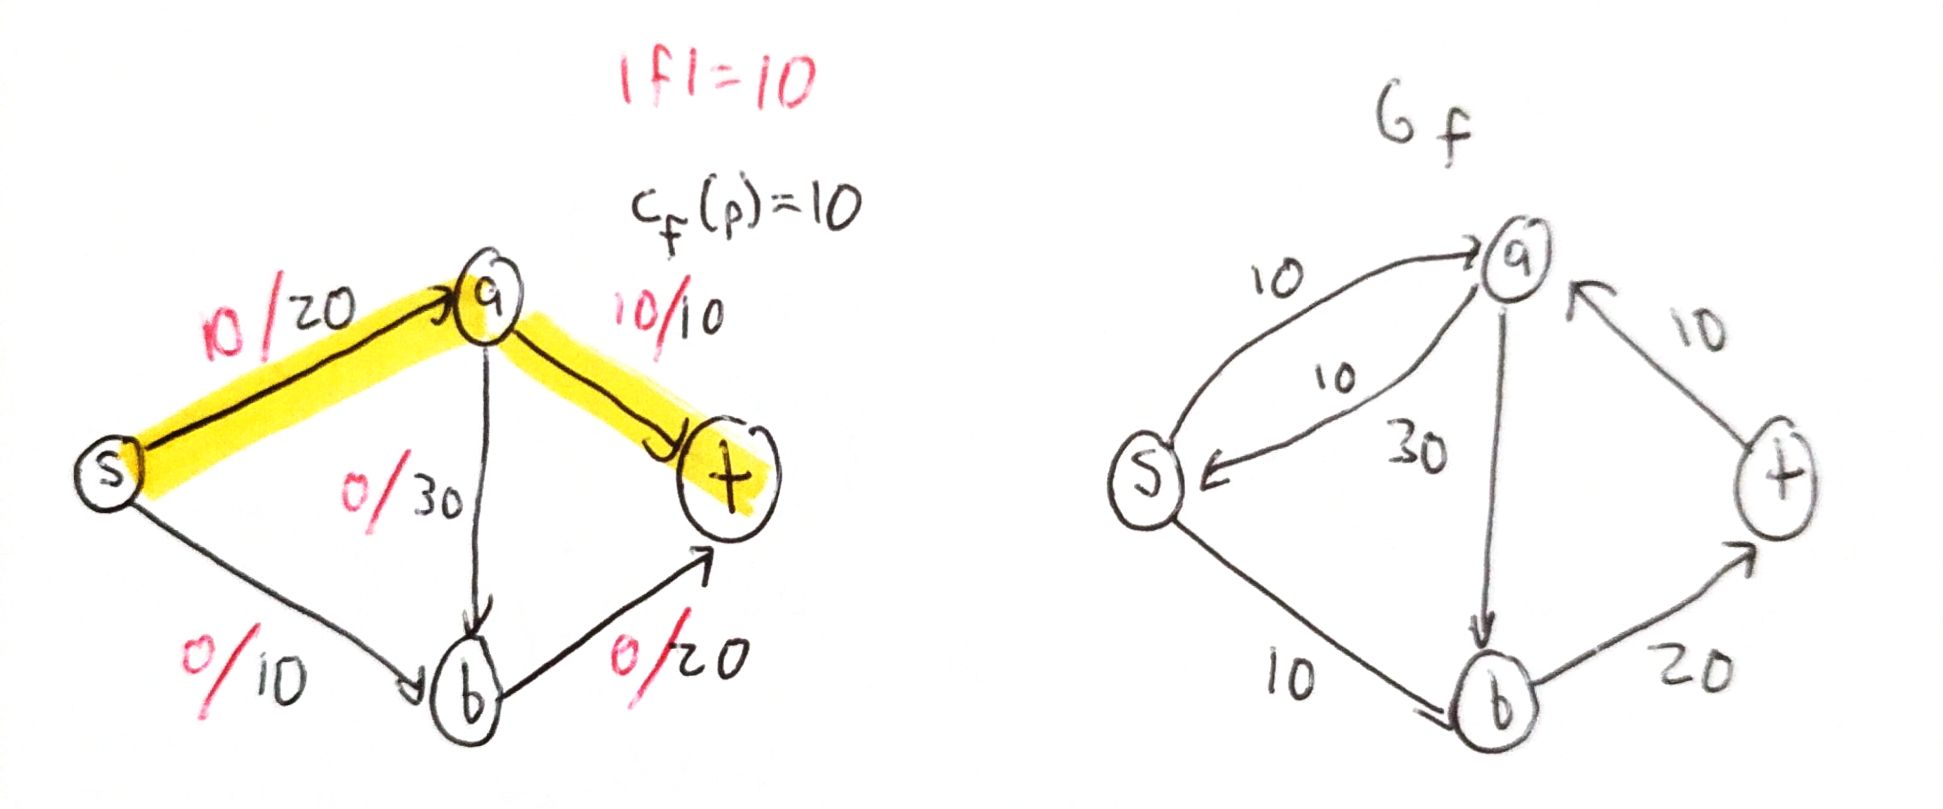 |f|=10
c_f(p)=10
10/20
a
10/10
s
0/30
t
0/10
b
0/20
G_f
10
a
10
10
30
S
t
10
b
20